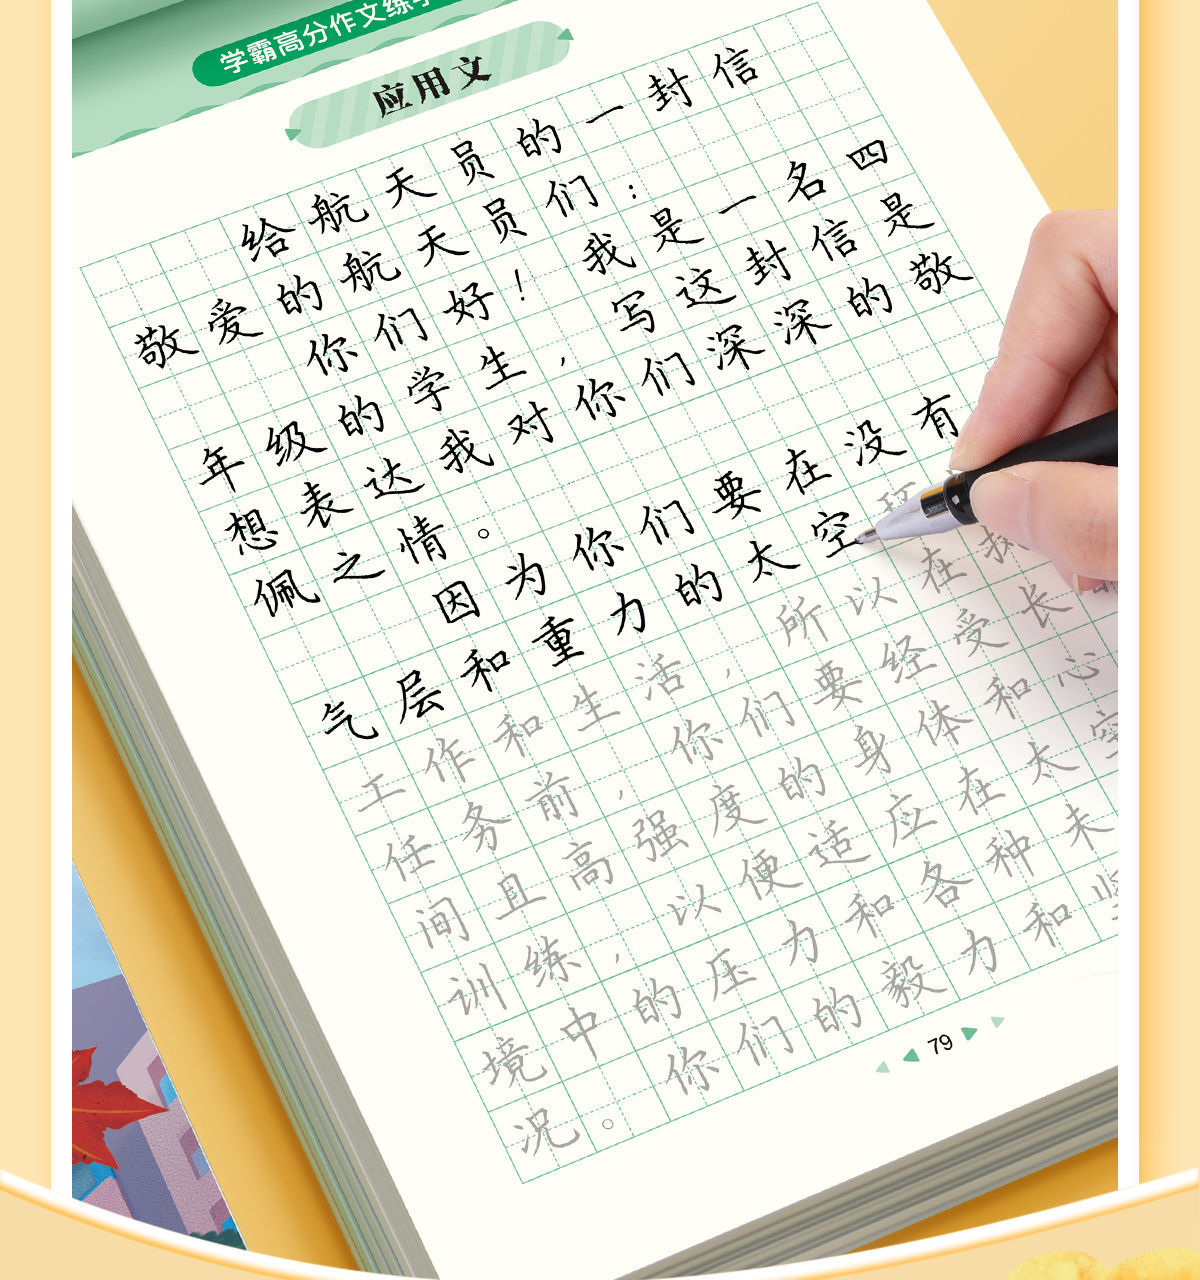 学霸高分作文练
应用文
给航天员的一封信
敬爱的航天员们：
你们好！我是一名四
年级的学生，写这封信是
想表达我对你们深深的敬
佩之情。
因为你们要在没有
气层和重力的太空
工作和生活，所以在探
任务前，你们要经受长
间且高强度的身体和心
训练，以便适应在太空
境中的压力和各种未
况。你们的毅力和
79